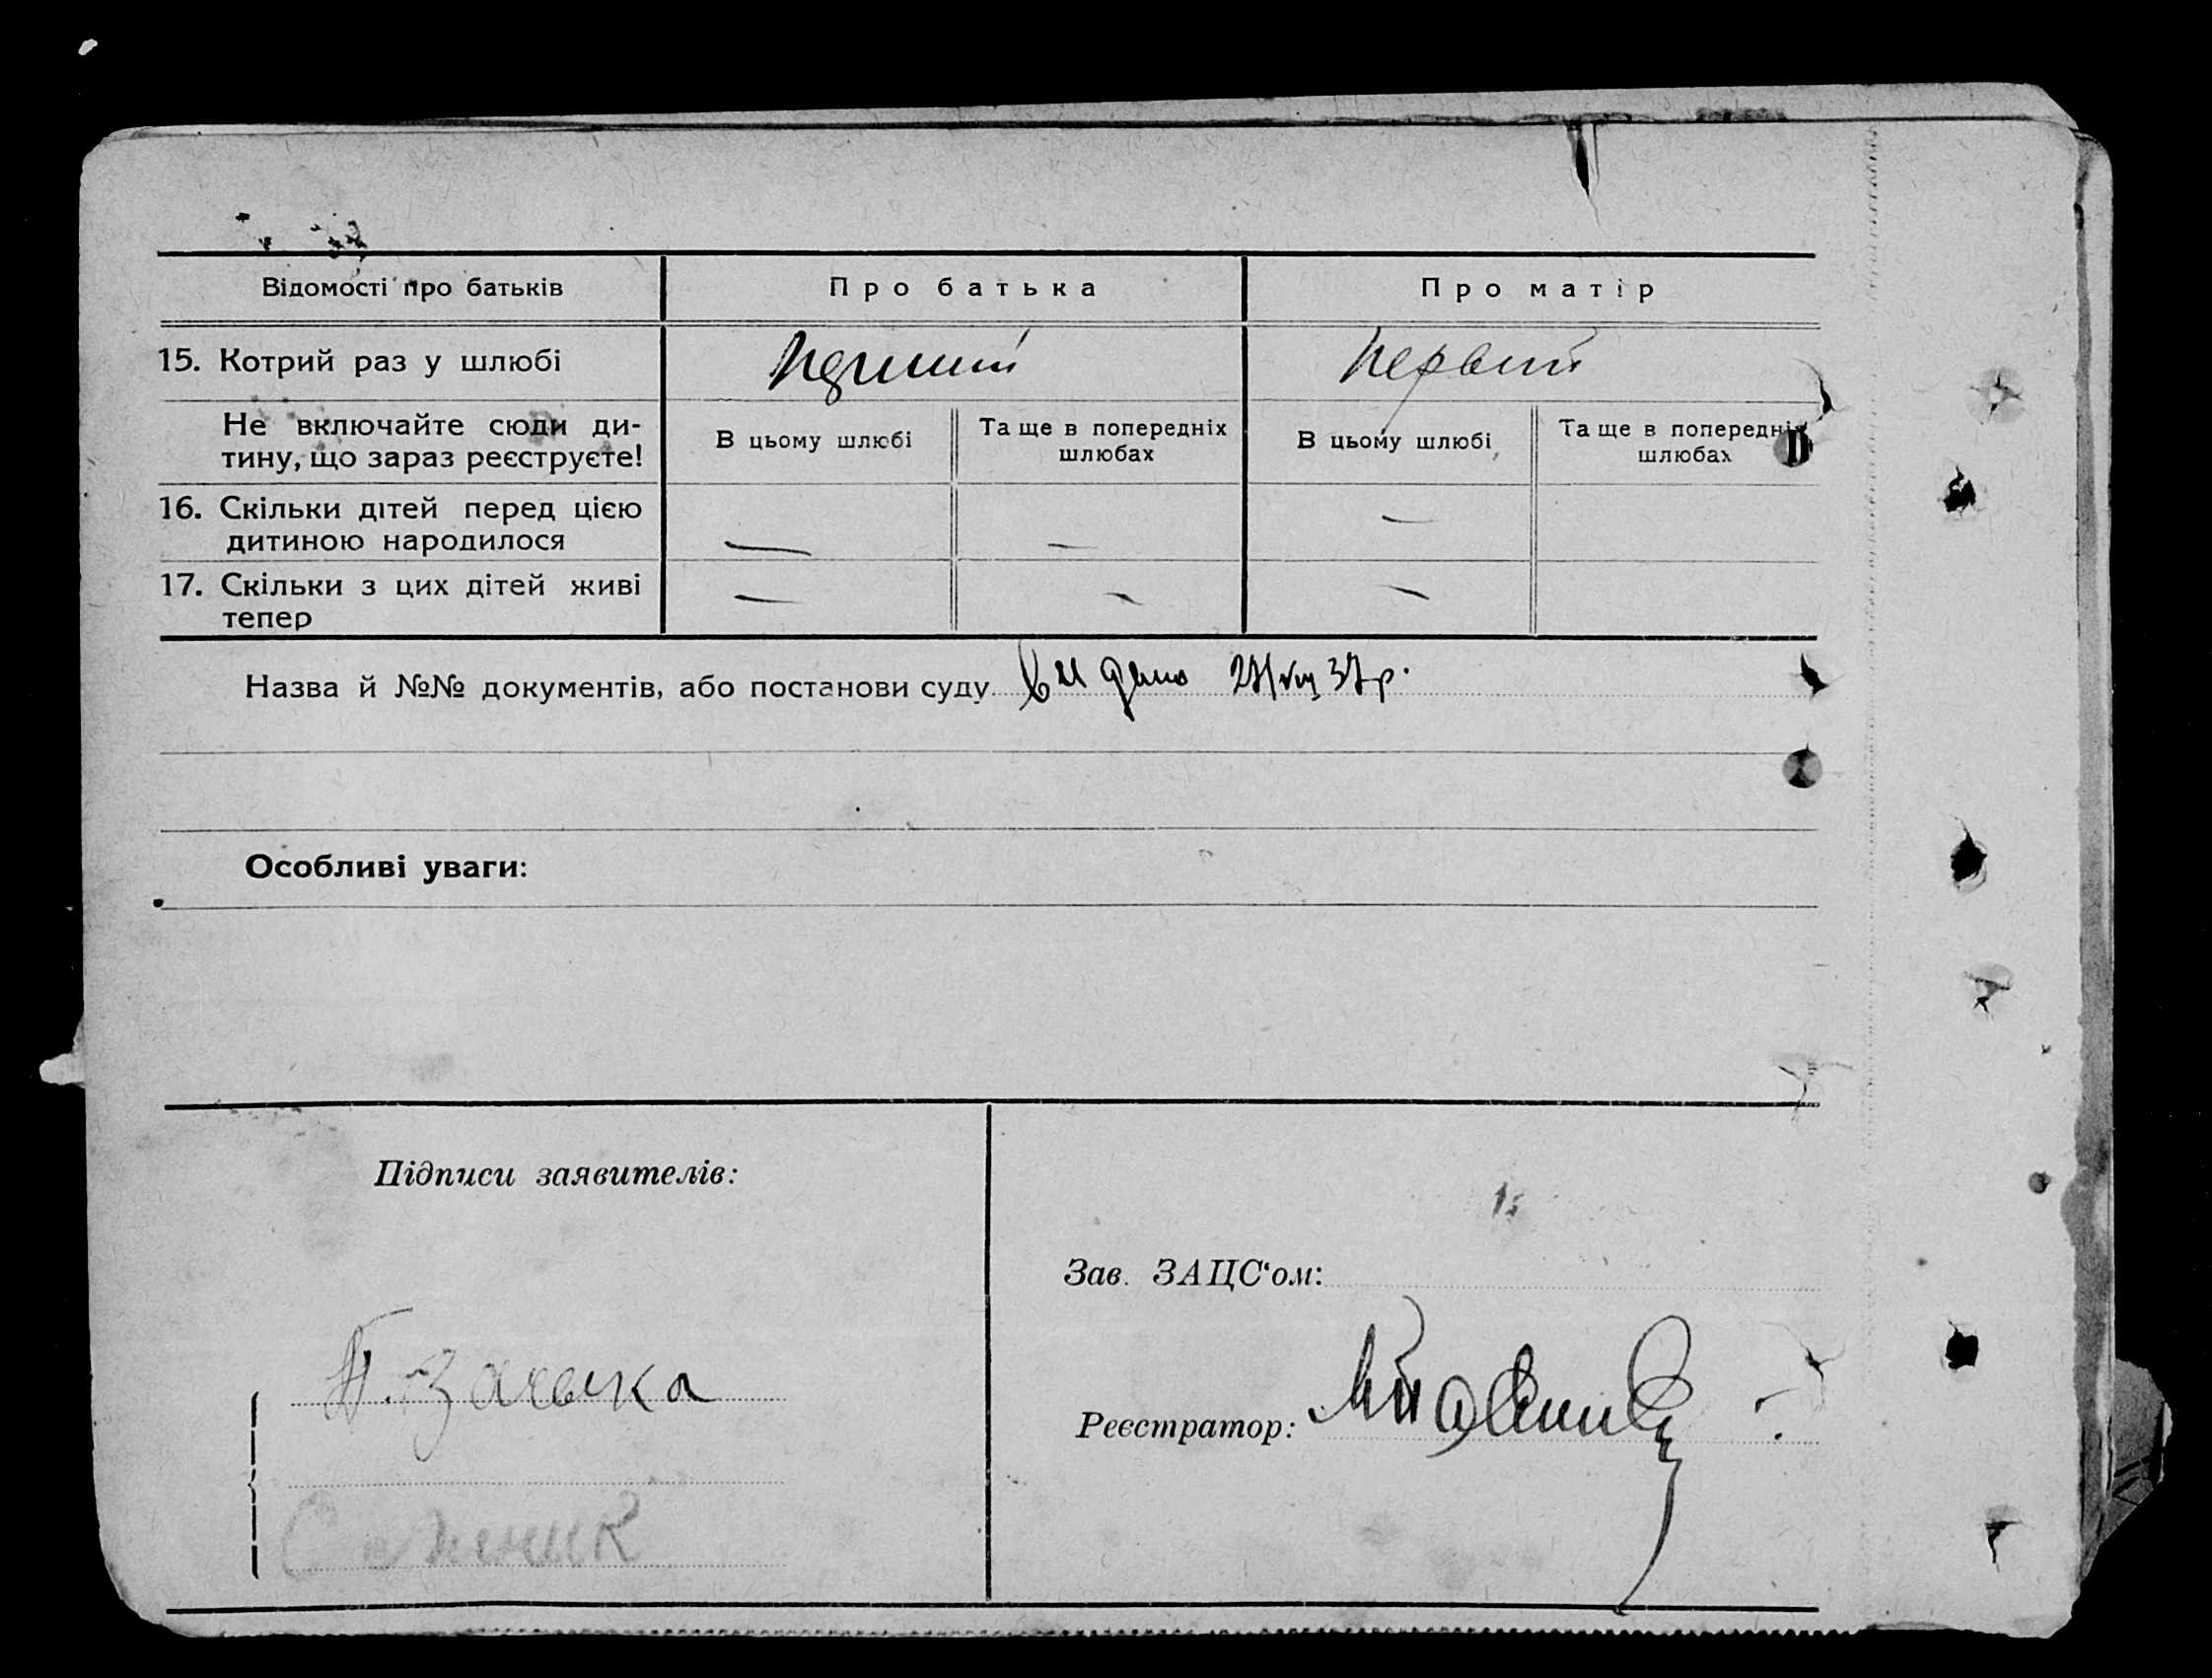 Відомості про батьків
Про батька
Про матір
15. Котрий раз у шлюбі
первий
Не включайте сюди ди-
тину, що зараз реєструєте!
В цьому шлюбі
Та ще в попередніх
шлюбах
В цьому шлюбі
Та ще в попередніх
шлюбах
16. Скільки дітей перед цією
дитиною народилося
— — —
17. Скільки з цих дітей живі
тепер
— — —
Назва й №№ документів, або постанови суду 27/VIII 37 р.
Особливі уваги:
Підписи заявителів:
Зав. ЗАЦС‘ом:
Реєстратор: